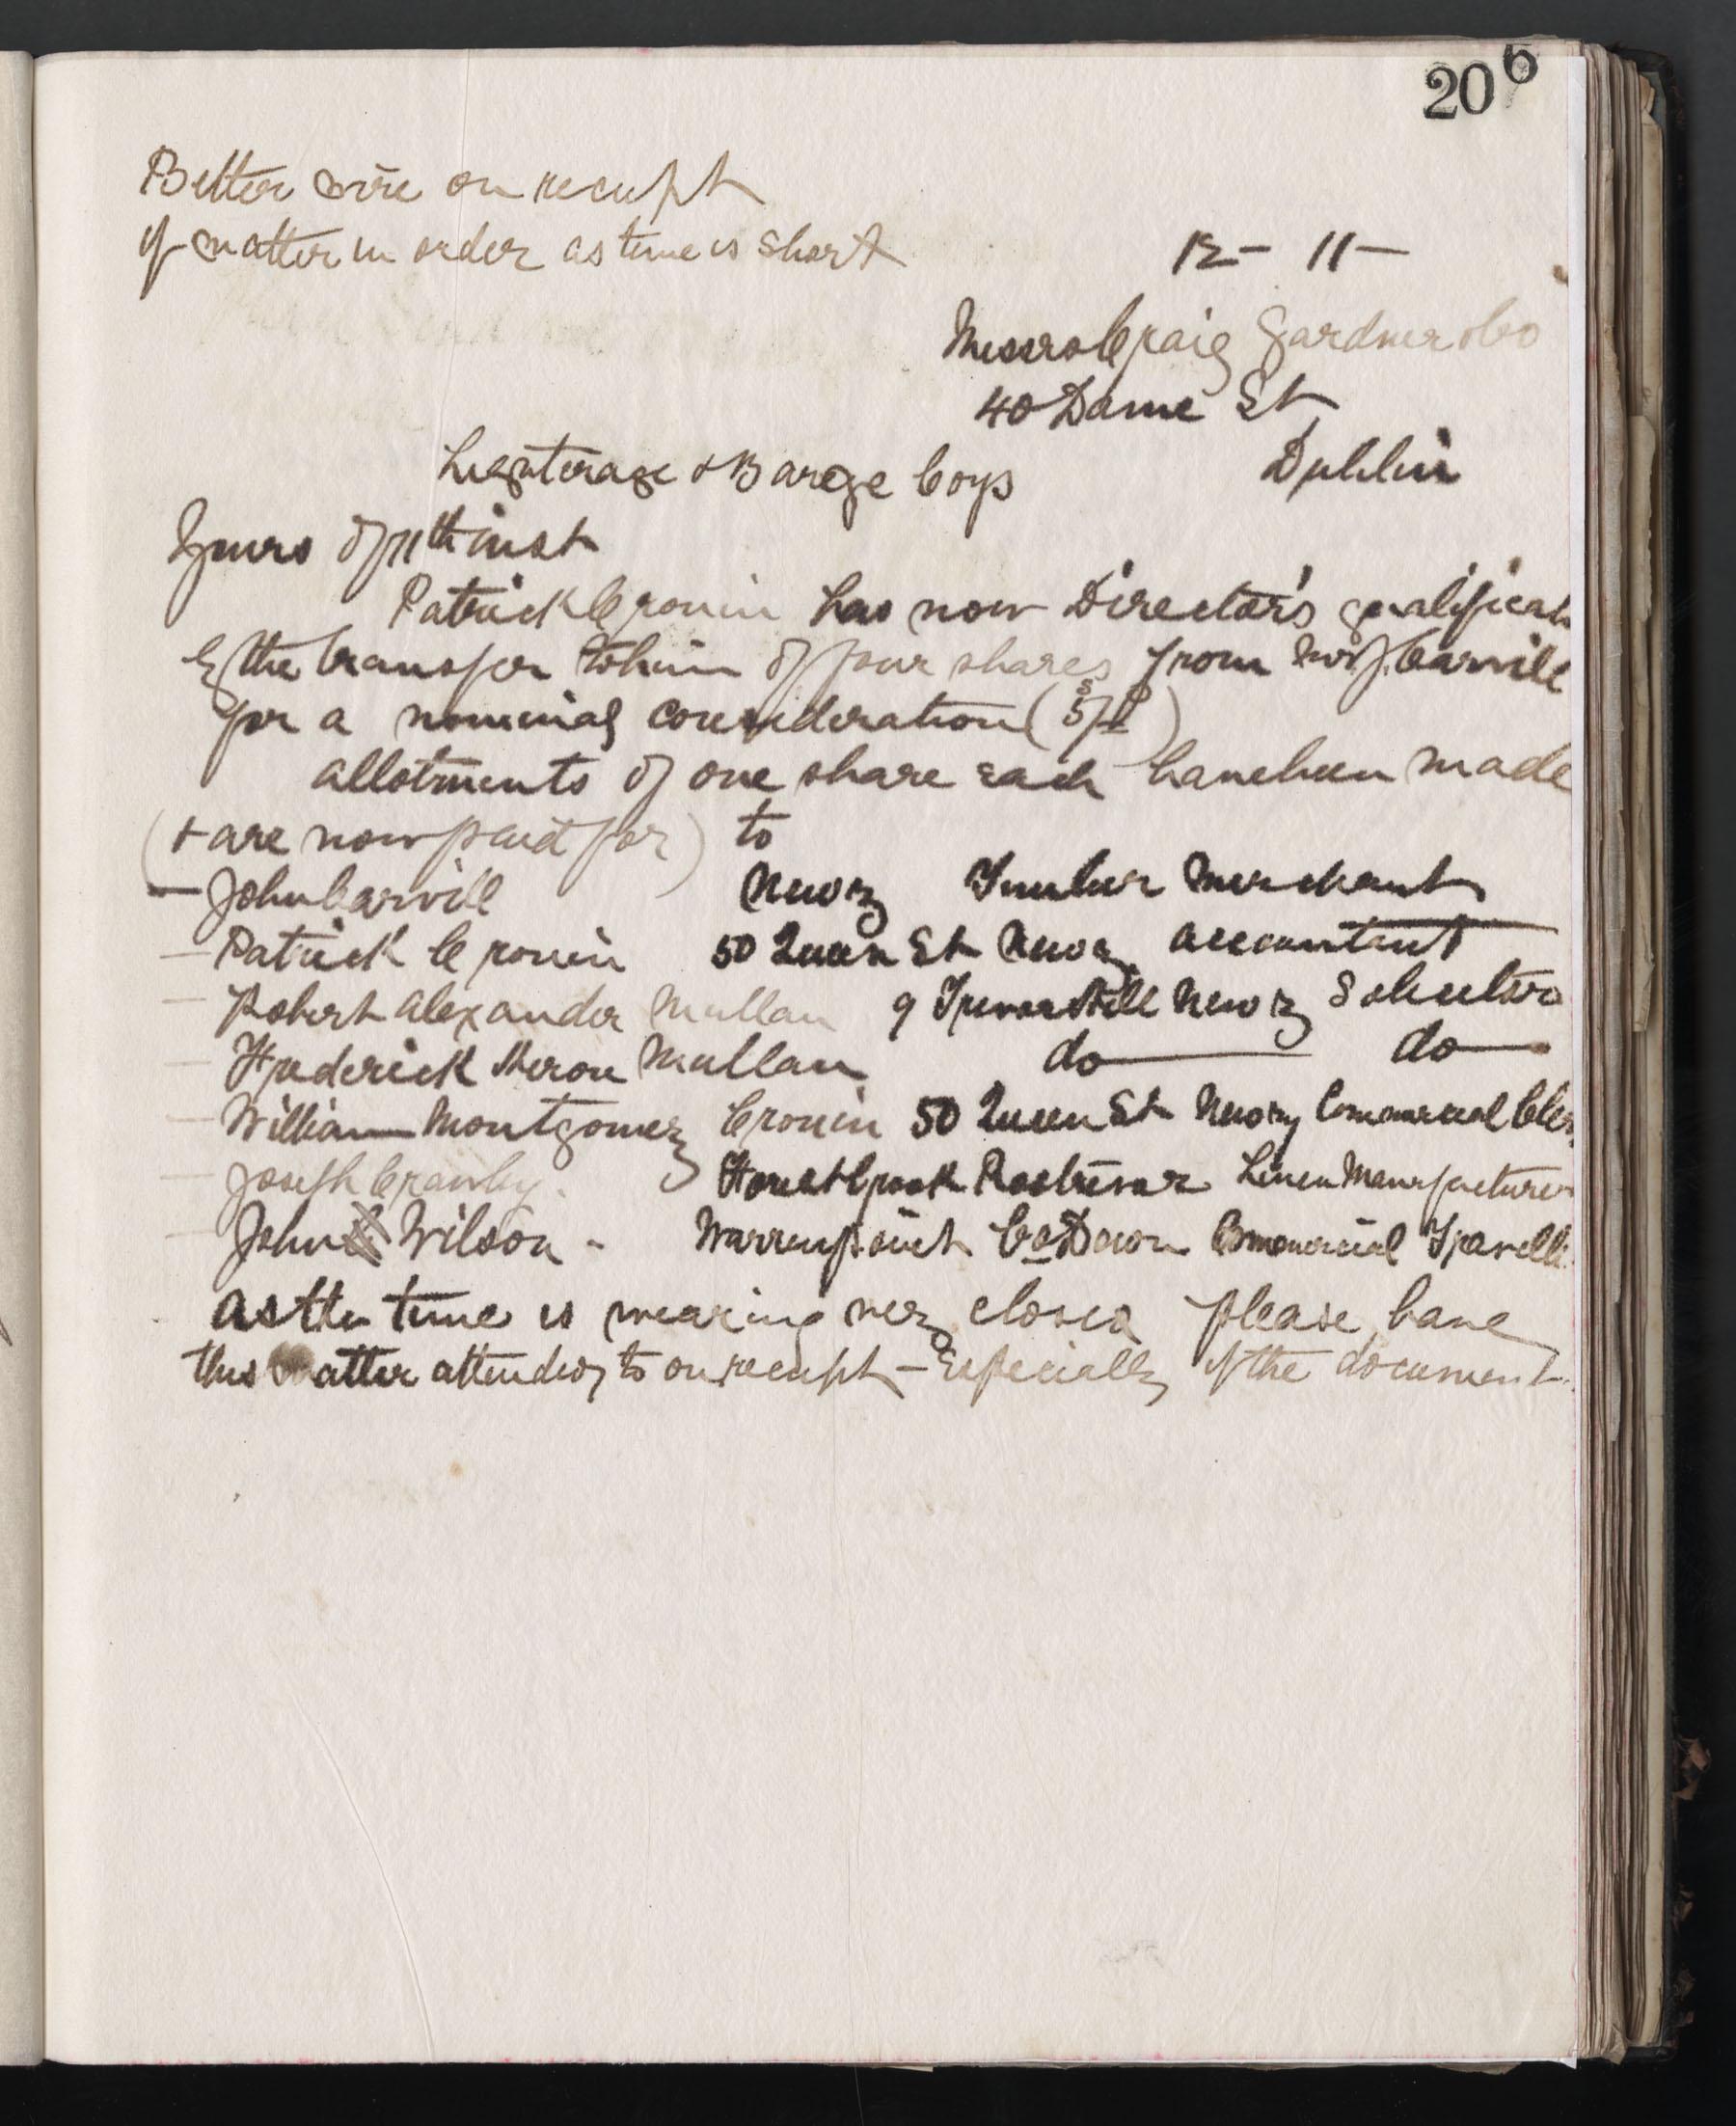 206
Better wire on receipt
if matter in order as time is short
12 - 11 -
Messrs Craig Gardner & Co
40 Dame St
Dublin
Lighterage & Barge Coys
Yours of 11th inst
Patrick Cronin has now Director's qualificat
by the transfer to him of four shares from Mr J. Carvill
for a nominal consideration (5/-)
allotments of one share each have been made
(& are now paid for) to
- John Carvill Newry Timber Merchant
- Patrick Cronin 50 Queen St Newry accountant
- Robert Alexander Mullan 9 Trevor Hill Newry Solicitor
- Frederick Heron Mullan do do
- William Montgomery Cronin 50 Queen St Newry Commercial Cler
- Joseph Crawley. Forestbrook Rostrevor Linen Manufacturer
- John Wilson - Warrenpoint Co Down Commercial Travell
As the time is wearing very closer please have
this matter attended to on receipt - Especially if the document